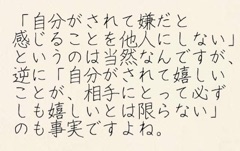 「自分がされて嫌だと
感じることを他人にしない」
というのは当然なんですが、
逆に「自分がされて嬉しい
ことが、相手にとって必ず
しも嬉しいとは限らない」
のも事実ですよね。